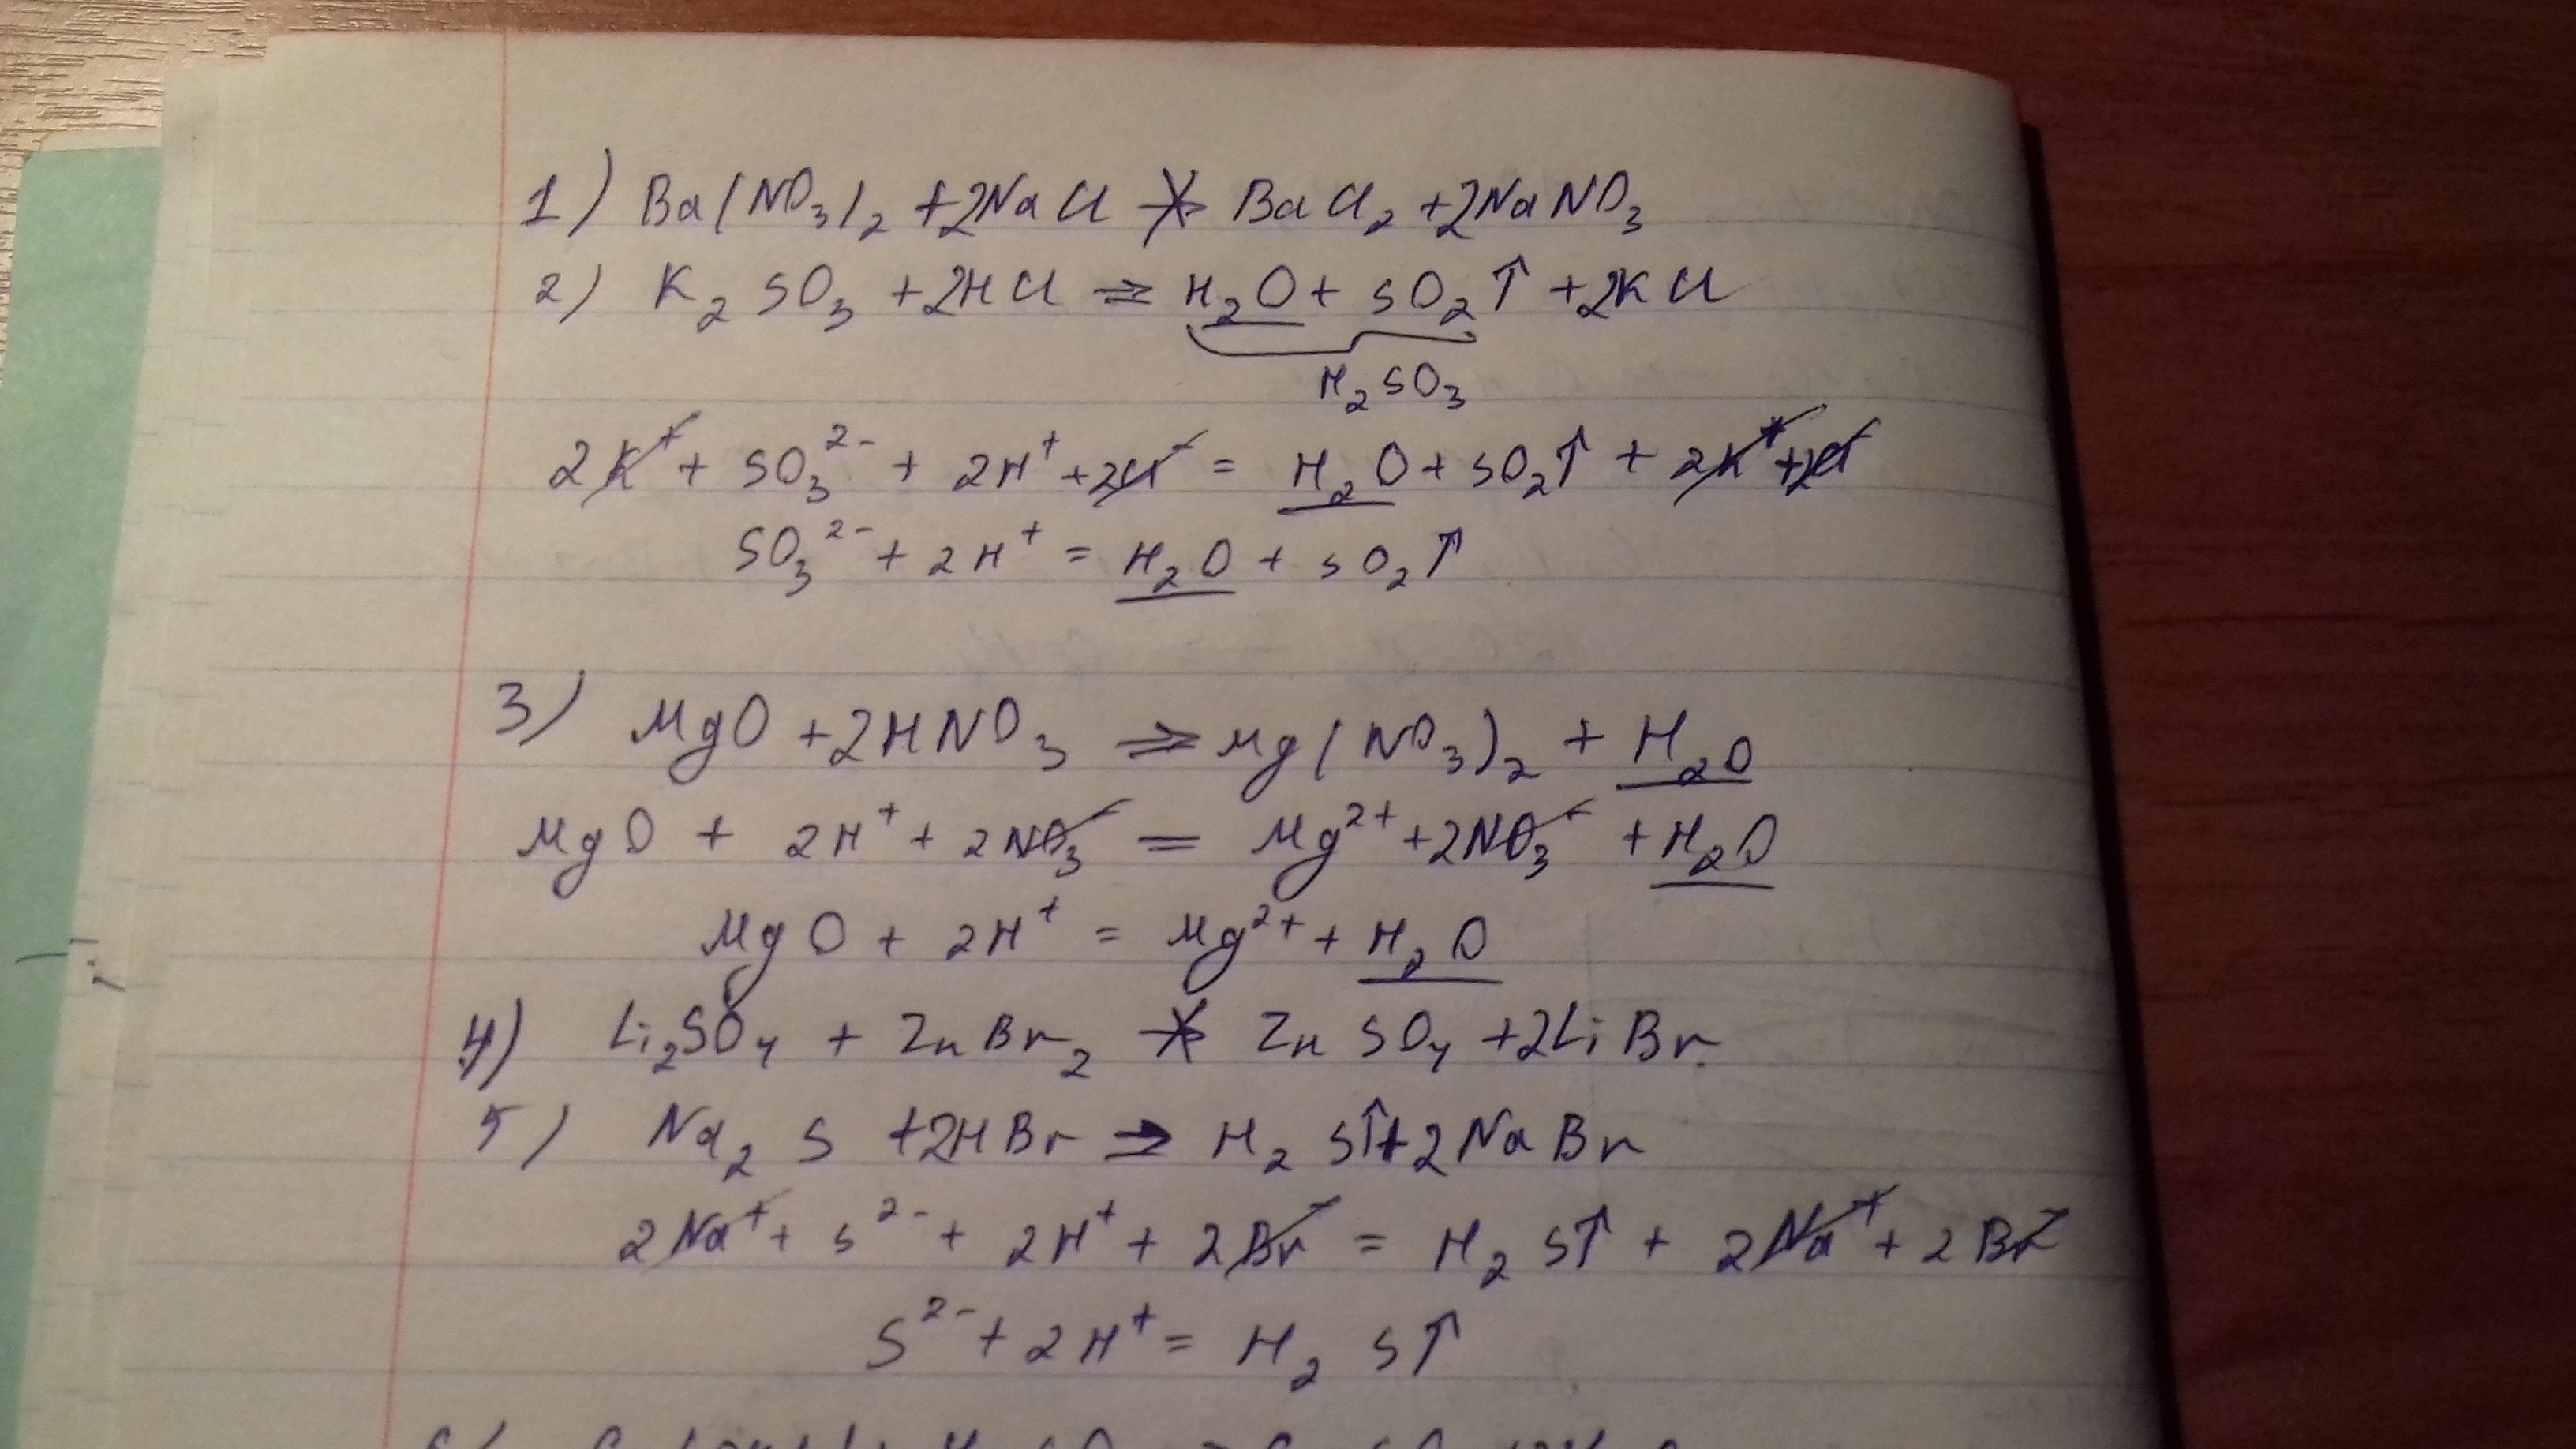 1) Ba(NO₃)₂ + 2NaCl ↛ BaCl₂ + 2NaNO₃
2) K₂SO₃ + 2HCl ⇒ H₂O + SO₂↑ + 2KCl
H₂SO₃
2K⁺ + SO₃²⁻ + 2H⁺ + 2Cl⁻ = H₂O + SO₂↑ + 2K⁺ + 2Cl⁻
SO₃²⁻ + 2H⁺ = H₂O + SO₂↑
3) MgO + 2HNO₃ ⇒ Mg(NO₃)₂ + H₂O
MgO + 2H⁺ + 2NO₃⁻ = Mg²⁺ + 2NO₃⁻ + H₂O
MgO + 2H⁺ = Mg²⁺ + H₂O
4) Li₂SO₄ + ZnBr₂ ↛ ZnSO₄ + 2LiBr
5) Na₂S + 2HBr → H₂S↑ + 2NaBr
2Na⁺ + S²⁻ + 2H⁺ + 2Br⁻ = H₂S↑ + 2Na⁺ + 2Br⁻
S²⁻ + 2H⁺ = H₂S↑